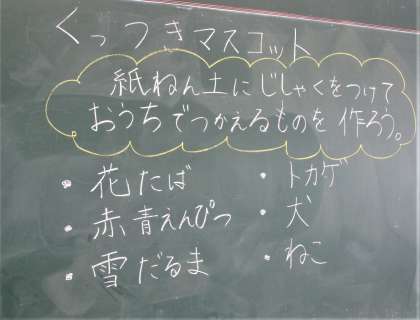 くっつきマスコット
紙ねん土にじしゃくをつけて
おうちでつかえるものを作ろう。
・花たば
・赤青えんぴつ
・雪だるま
・トカゲ
・犬
・ねこ